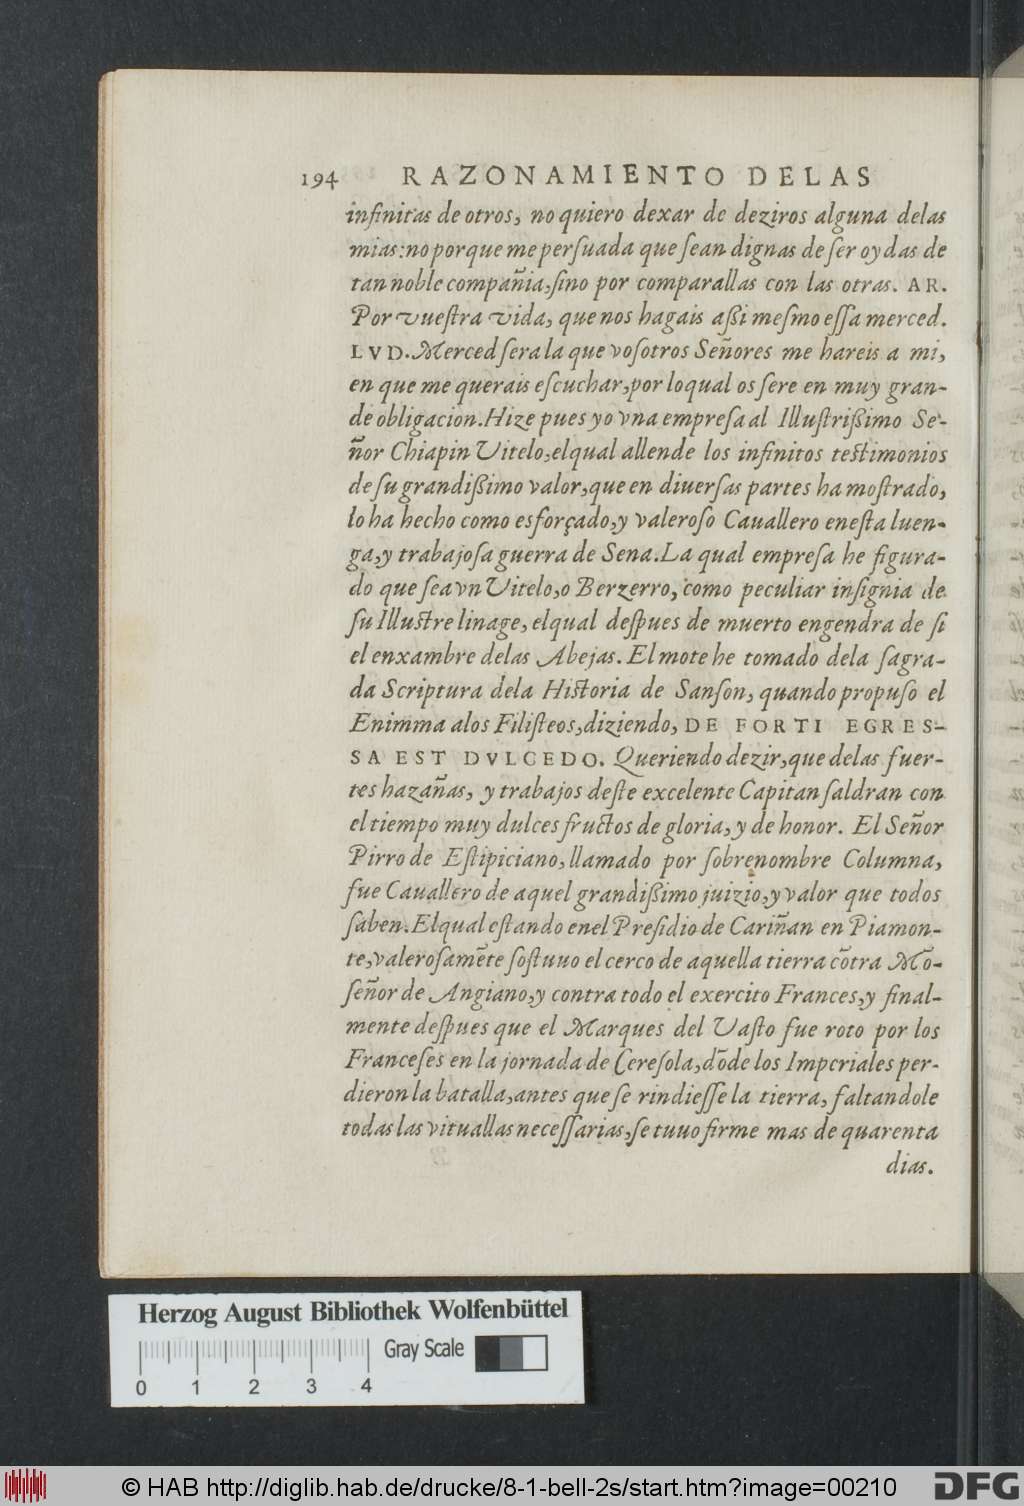 194 RAZONAMIENTO DELAS
infinitas de otros, no quiero dexar de deziros alguna delas
mias: no porque me perſuada que ſean dignas de ſer oydas de
tan noble compañia, ſino por comparallas con las otras. AR.
Por vueſtra vida, que nos hagais aßi meſmo eſſa merced.
LVD. Merced ſera la que voſotros Señores me hareis a mi,
en que me querais eſcuchar, por loqual os ſere en muy gran-
de obligacion. Hize pues yo vna empreſa al Illuſtrißimo Se-
ñor Chiapin Vitelo, elqual allende los infinitos testimonios
de ſu grandißimo valor, que en diuerſas partes ha moſtrado,
lo ha hecho como esforçado, y valeroſo Cauallero eneſta luen-
ga, y trabajoſa guerra de Sena. La qual empreſa he figura-
do que ſea vn Vitelo, o Berzerro, como peculiar inſignia de
ſu Illuſtre linage, elqual deſpues de muerto engendra de ſi
el enxambre delas Abejas. El mote he tomado dela ſagra-
da Scriptura dela Historia de Sanſon, quando propuſo el
Enimma alos Filiſteos, diziendo, DE FORTI EGRES-
SA EST DVLCEDO. Queriendo dezir, que delas fuer-
tes hazañas, y trabajos deſte excelente Capitan ſaldran con
el tiempo muy dulces fructos de gloria, y de honor. El Señor
Pirro de Eſtipiciano, llamado por ſobrenombre Columna,
fue Cauallero de aquel grandißimo juizio, y valor que todos
ſaben. Elqual eſtando enel Preſidio de Cariñan en Piamon-
te, valeroſamẽte ſoſtuuo el cerco de aquella tierra cõtra Mõ-
ſeñor de Angiano, y contra todo el exercito Frances, y final-
mente deſpues que el Marques del Vaſto fue roto por los
Franceſes en la jornada de Cereſola, dõde los Imperiales per-
dieron la batalla, antes que ſe rindieſſe la tierra, faltandole
todas las vituallas neceſſarias, ſe tuuo firme mas de quarenta
dias.
Herzog August Bibliothek Wolfenbüttel
Gray Scale
0 1 2 3 4
© HAB http://diglib.hab.de/drucke/8-1-bell-2s/start.htm?image=00210
DFG